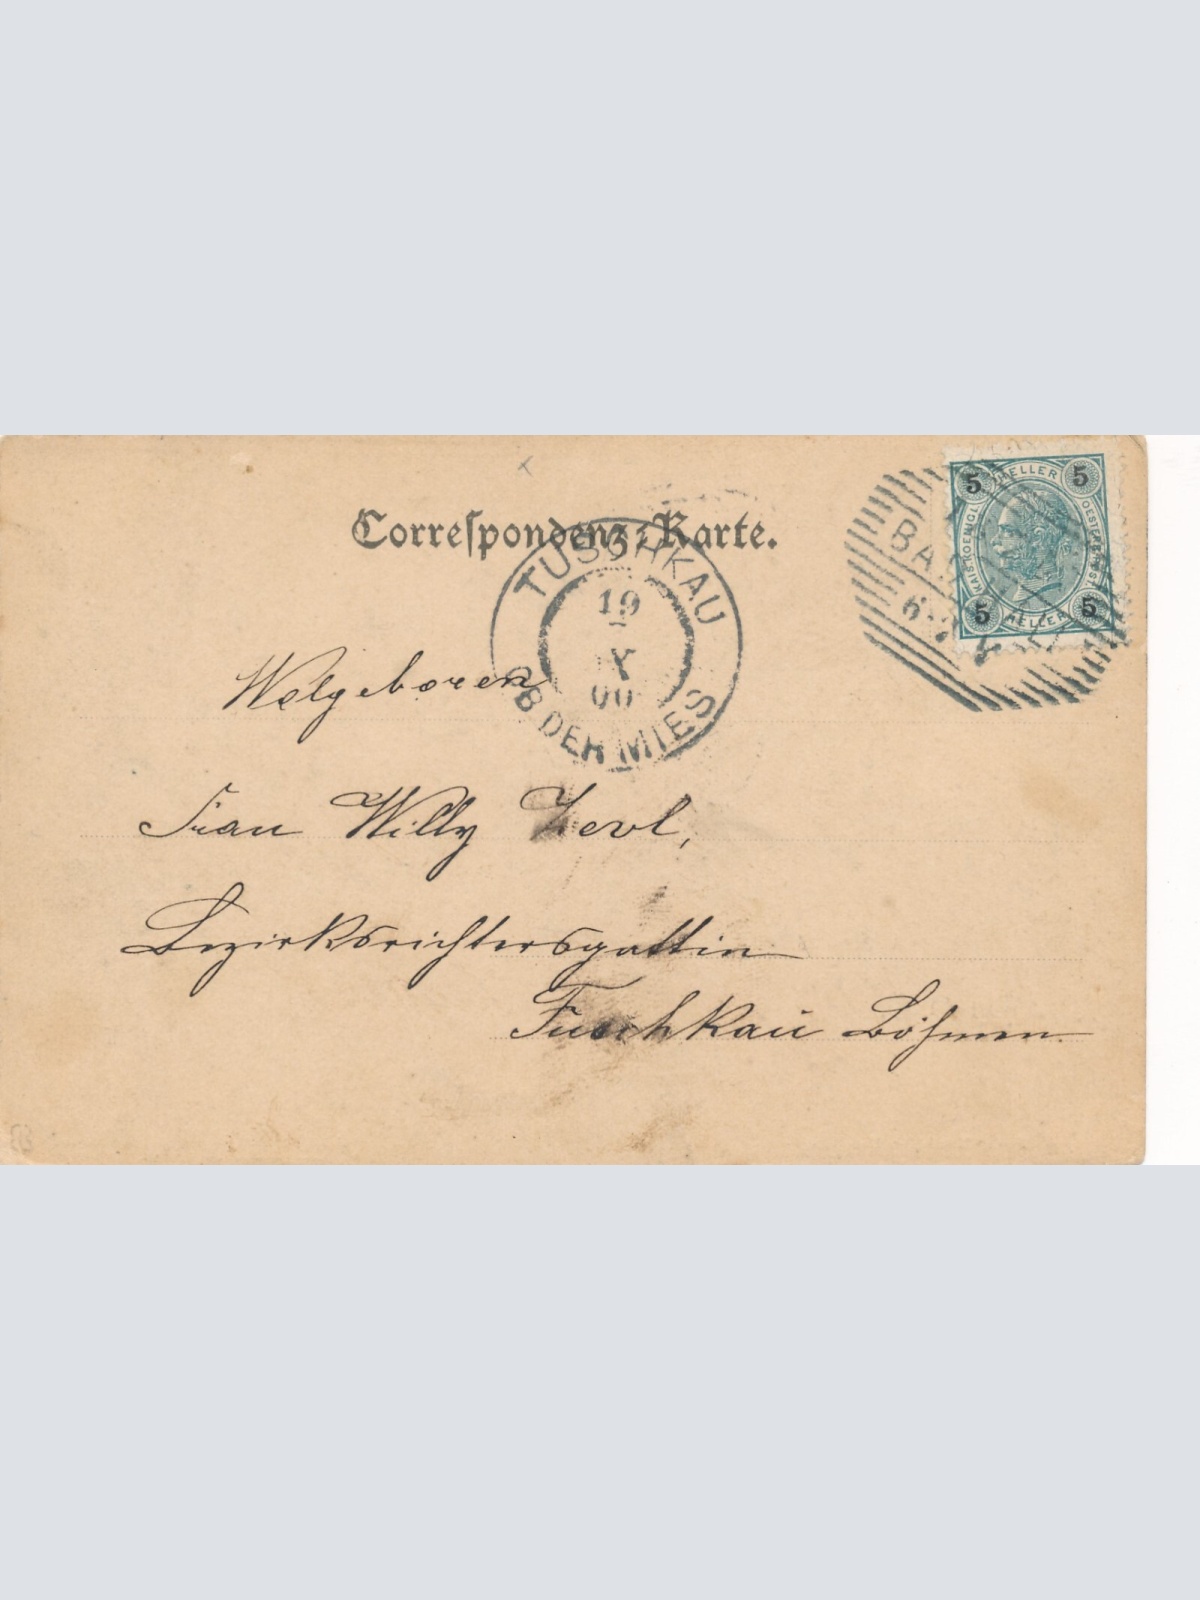 Correspondenz-Karte.
5 HELLER 5
KAIS. KOENIGL.
OESTERR. POST
5 HELLER 5
BA
6
TUSCHKAU
19
X
00
OB DER MIES
Wolgeboren
Frau Willy Zevl,
Bezirksrichtersgattin
Tuschkau Böhmen